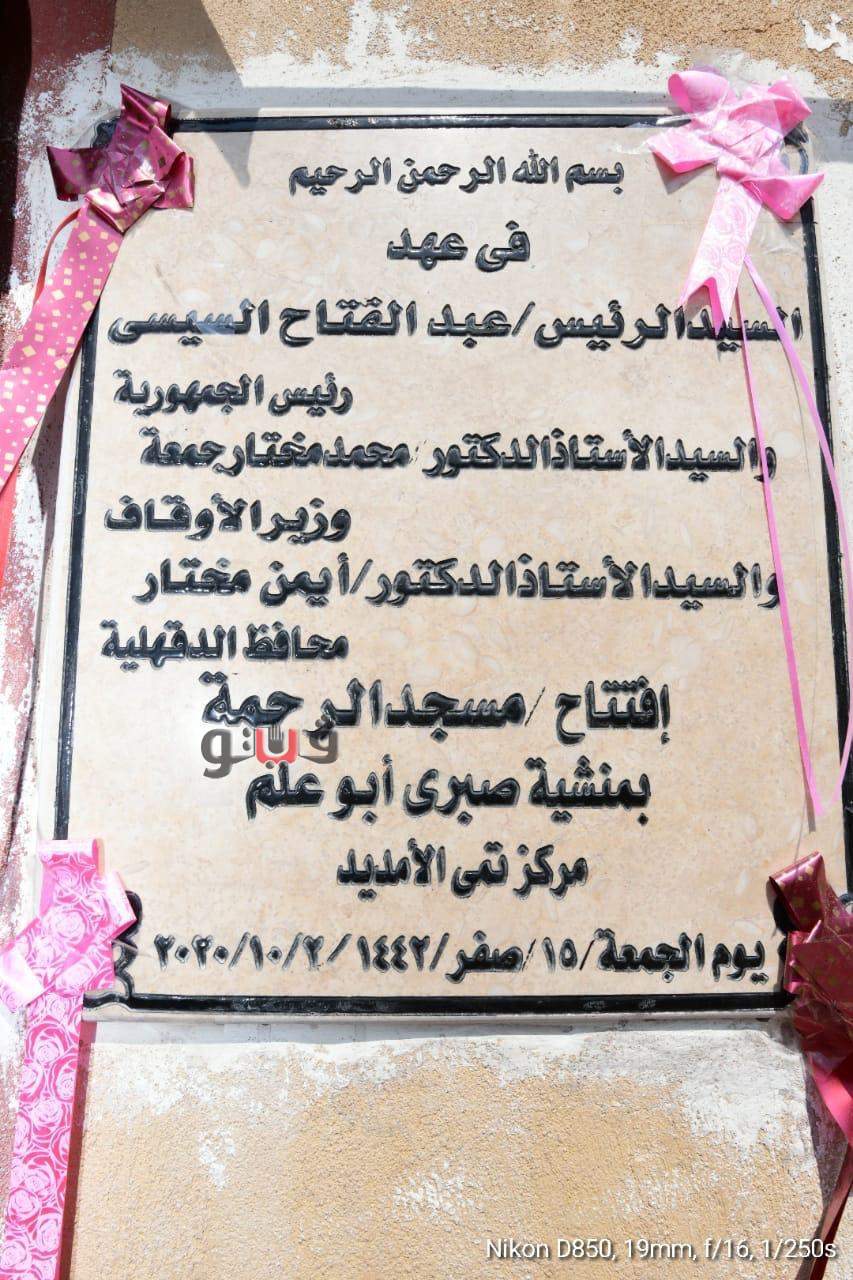 بسم الله الرحمن الرحيم
فى عهد
السيد الرئيس/عبد الفتاح السيسى
رئيس الجمهورية
والسيد الأستاذ الدكتور/محمد مختار جمعة
وزير الأوقاف
والسيد الأستاذ الدكتور/أيمن مختار
محافظ الدقهلية
إفتتاح /مسجد الرحمة
فيتو
بمنشية صبرى أبو علم
مركز تمى الأمديد
يوم الجمعة/١٥/صفر/١٤٤٢/٢٠٢٠/١٠/٢
Nikon D850, 19mm, f/16, 1/250s